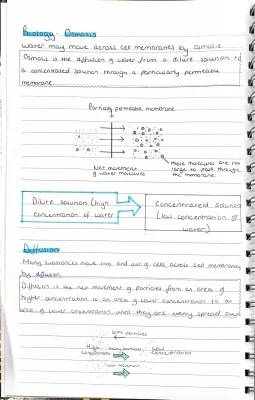 Biology - Osmosis
Water may move across cell membranes by osmosis
Osmosis is the diffusion of water from a dilute solution to
a concentrated solution through a partially permeable
membrane.
Partially permeable membrane
Net movement
of water molecules
these molecules are too
large to pass through
the membrane.
Dilute solution (high
concentration of water
Concentrated solution
(low concentration of
water)
Diffusion
Many substances move into and out of cells, across cell membranes,
by diffusion
Diffusion is the net movement of particles from an area of
higher concentration to an area of lower concentration to an
area of lower concentration until they are evenly spread out
particles
High
Low
concentration